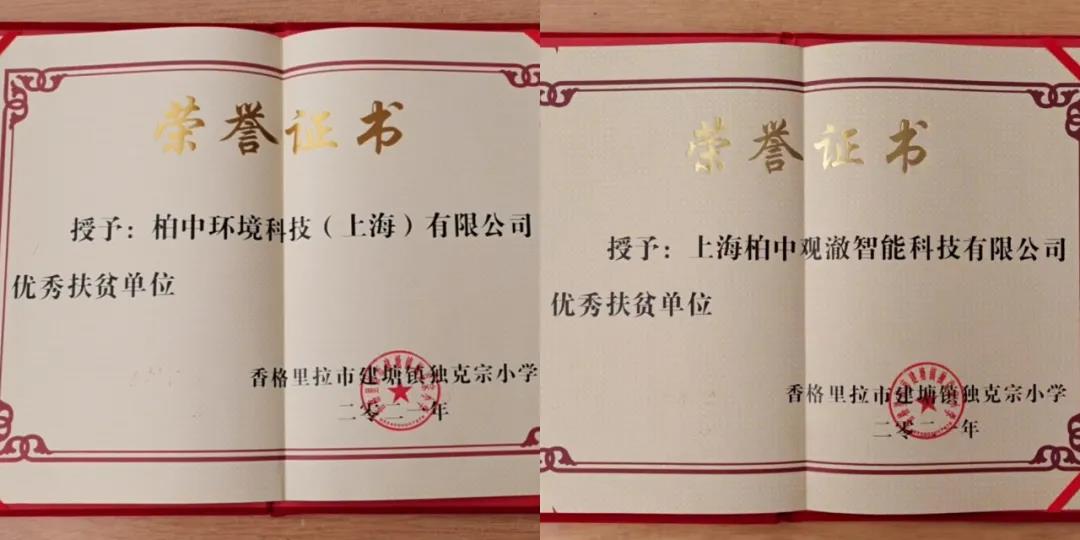 荣誉证书
授予：柏中环境科技（上海）有限公司
优秀扶贫单位
香格里拉市建塘镇独克宗小学
二零二一年
荣誉证书
授予：上海柏中观澈智能科技有限公司
优秀扶贫单位
香格里拉市建塘镇独克宗小学
二零二一年